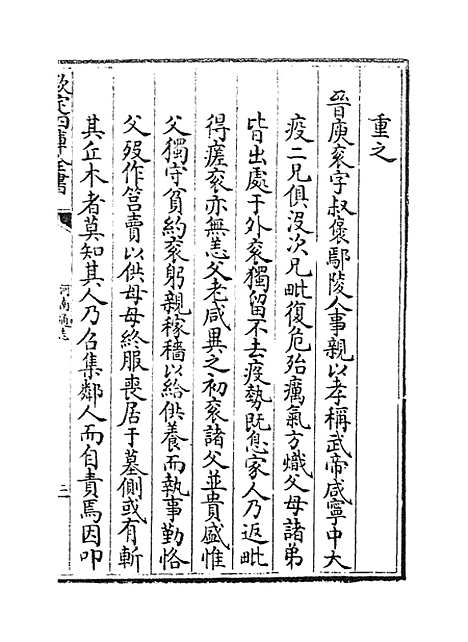 重之
晉庾衮字叔褒鄢陵人事親以孝稱武帝咸寧中大
疫二兄俱没次兄毗復危殆癘氣方熾父母諸弟
皆出處于外衮獨留不去疫勢既息家人乃返毗
得瘥衮亦無恙父老咸異之初衮諸父並貴盛惟
父獨守貧約衮躬親稼穡以給供養而執事勤恪
父殁作筥賣以供母母終服喪居于墓側或有斬
其丘木者莫知其人乃召集鄰人而自責焉因叩
欽定四庫全書
河南通志
二